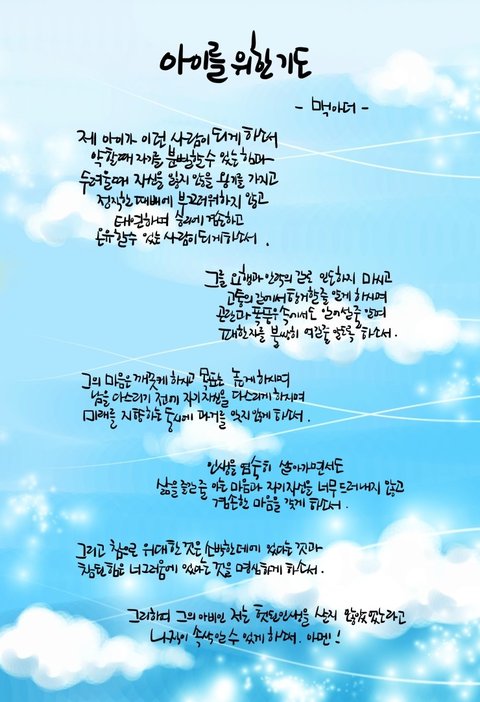 아이를 위한 기도
- 맥아더 -
제 아이가 이런 사람이 되게 하소서
약할때 자기를 분별할수 있는 힘과
두려울때 자신을 잃지 않을 용기를 가지고
정직한 패배에 부끄러워하지 않고
태연하며 승리에 겸손하고
온유할수 있는 사람이 되게 하소서.
그를 요행과 안락의 길로 인도하지 마시고
고통의 길에서 항거할줄 알게 하시며
곤란과 폭풍우 속에서도 일어설줄 알며
패한자를 불쌍히 여길줄 알도록 하소서.
그의 마음은 깨끗케 하시고 목표는 높게 하시며
남을 다스리기 전에 자기자신을 다스리게 하시며
미래를 지향하는 동시에 과거를 잊지 않게 하소서.
인생을 엄숙히 살아가면서도
삶을 즐길줄 아는 마음과 자기자신을 너무 드러내지 않고
겸손한 마음을 갖게 하소서.
그리고 참으로 위대한 것은 소박한데에 있다는 것과
참된 힘은 너그러움에 있다는 것을 명심하게 하소서.
그리하며 그의 아비인 저는 헛된인생을 살지 않았었노라고
나직이 속삭일수 있게 하소서. 아멘!!